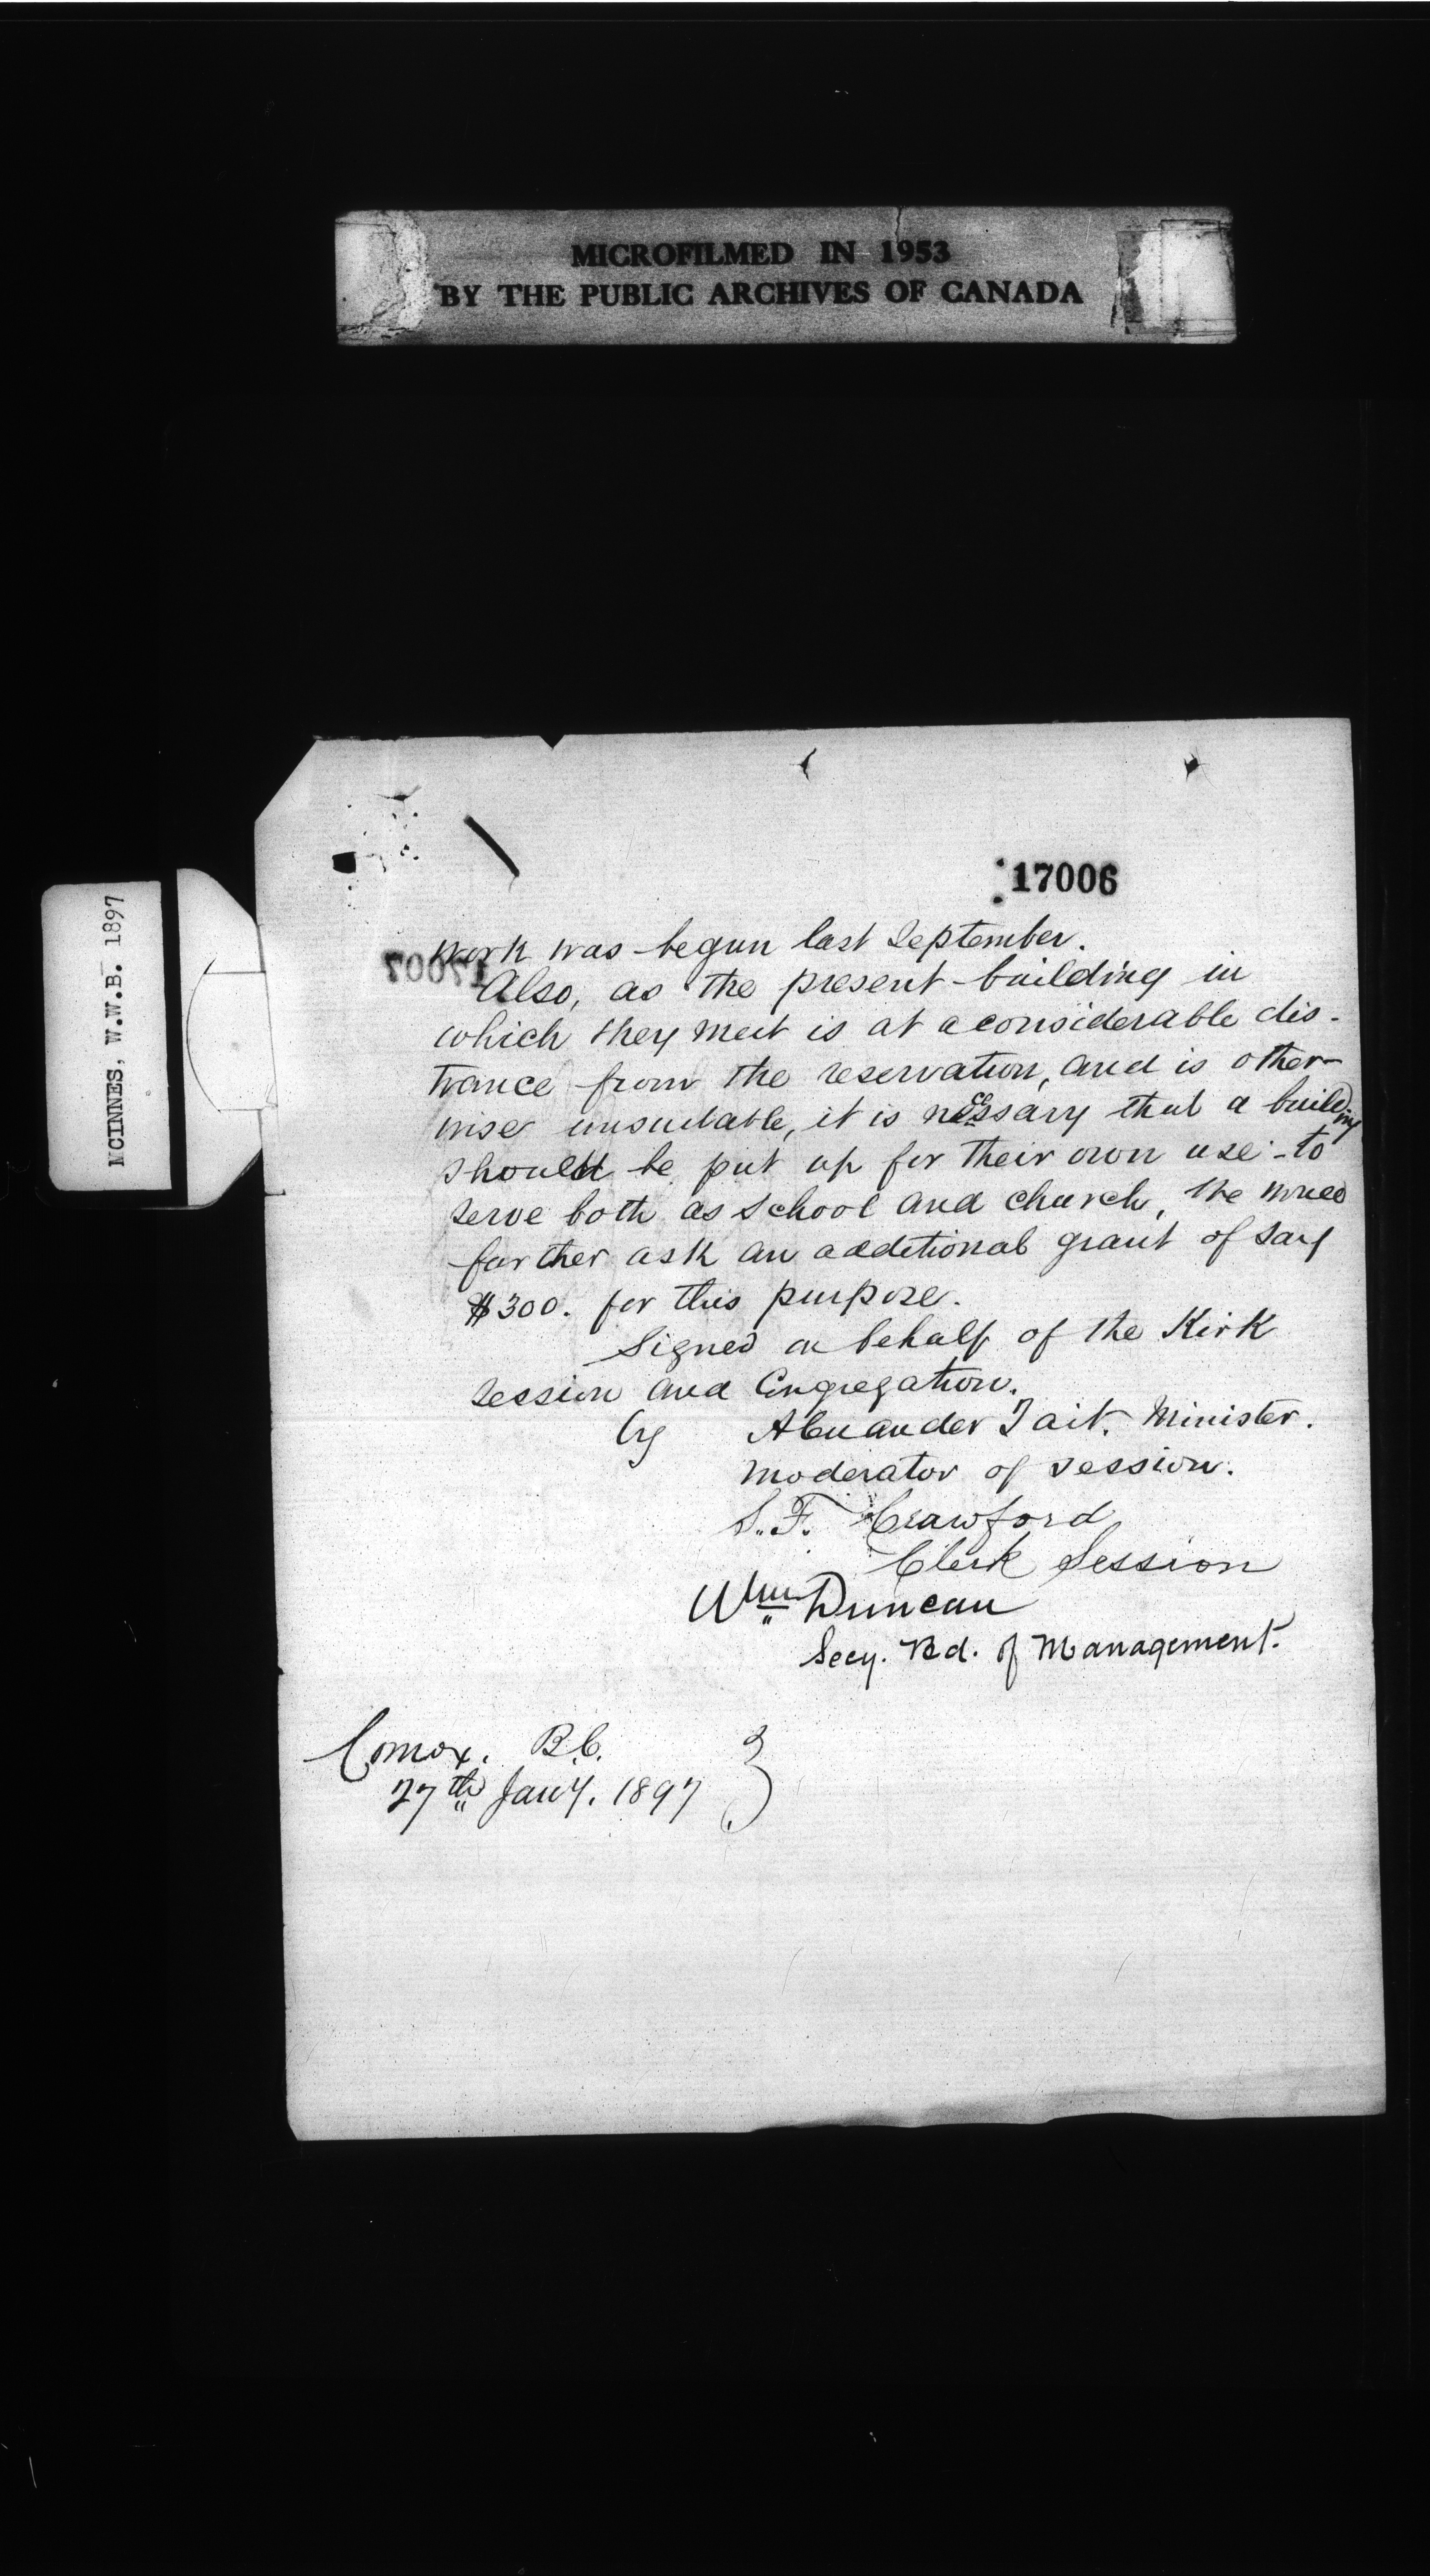 MICROFILMED IN 1953
BY THE PUBLIC ARCHIVES OF CANADA
MCINNES, W.W.B. 1897
17006
17007
work was begun last September.
Also, as the present building in
which they meet is at a considerable dis-
tance from the reservation, and is other-
wise unsuitable, it is necessary that a building
should be put up for their own use - to
serve both as school and church, We would
further ask an additional grant of say
$300. for this purpose.
Signed on behalf of the Kirk
session and Congregation.
by Alexander Tait. Minister.
Moderator of session.
S. F. Crawford
Clerk Session
Wm Duncan
Secy. Bd. of Management.
Comox. B.C.
27th Jany. 1897